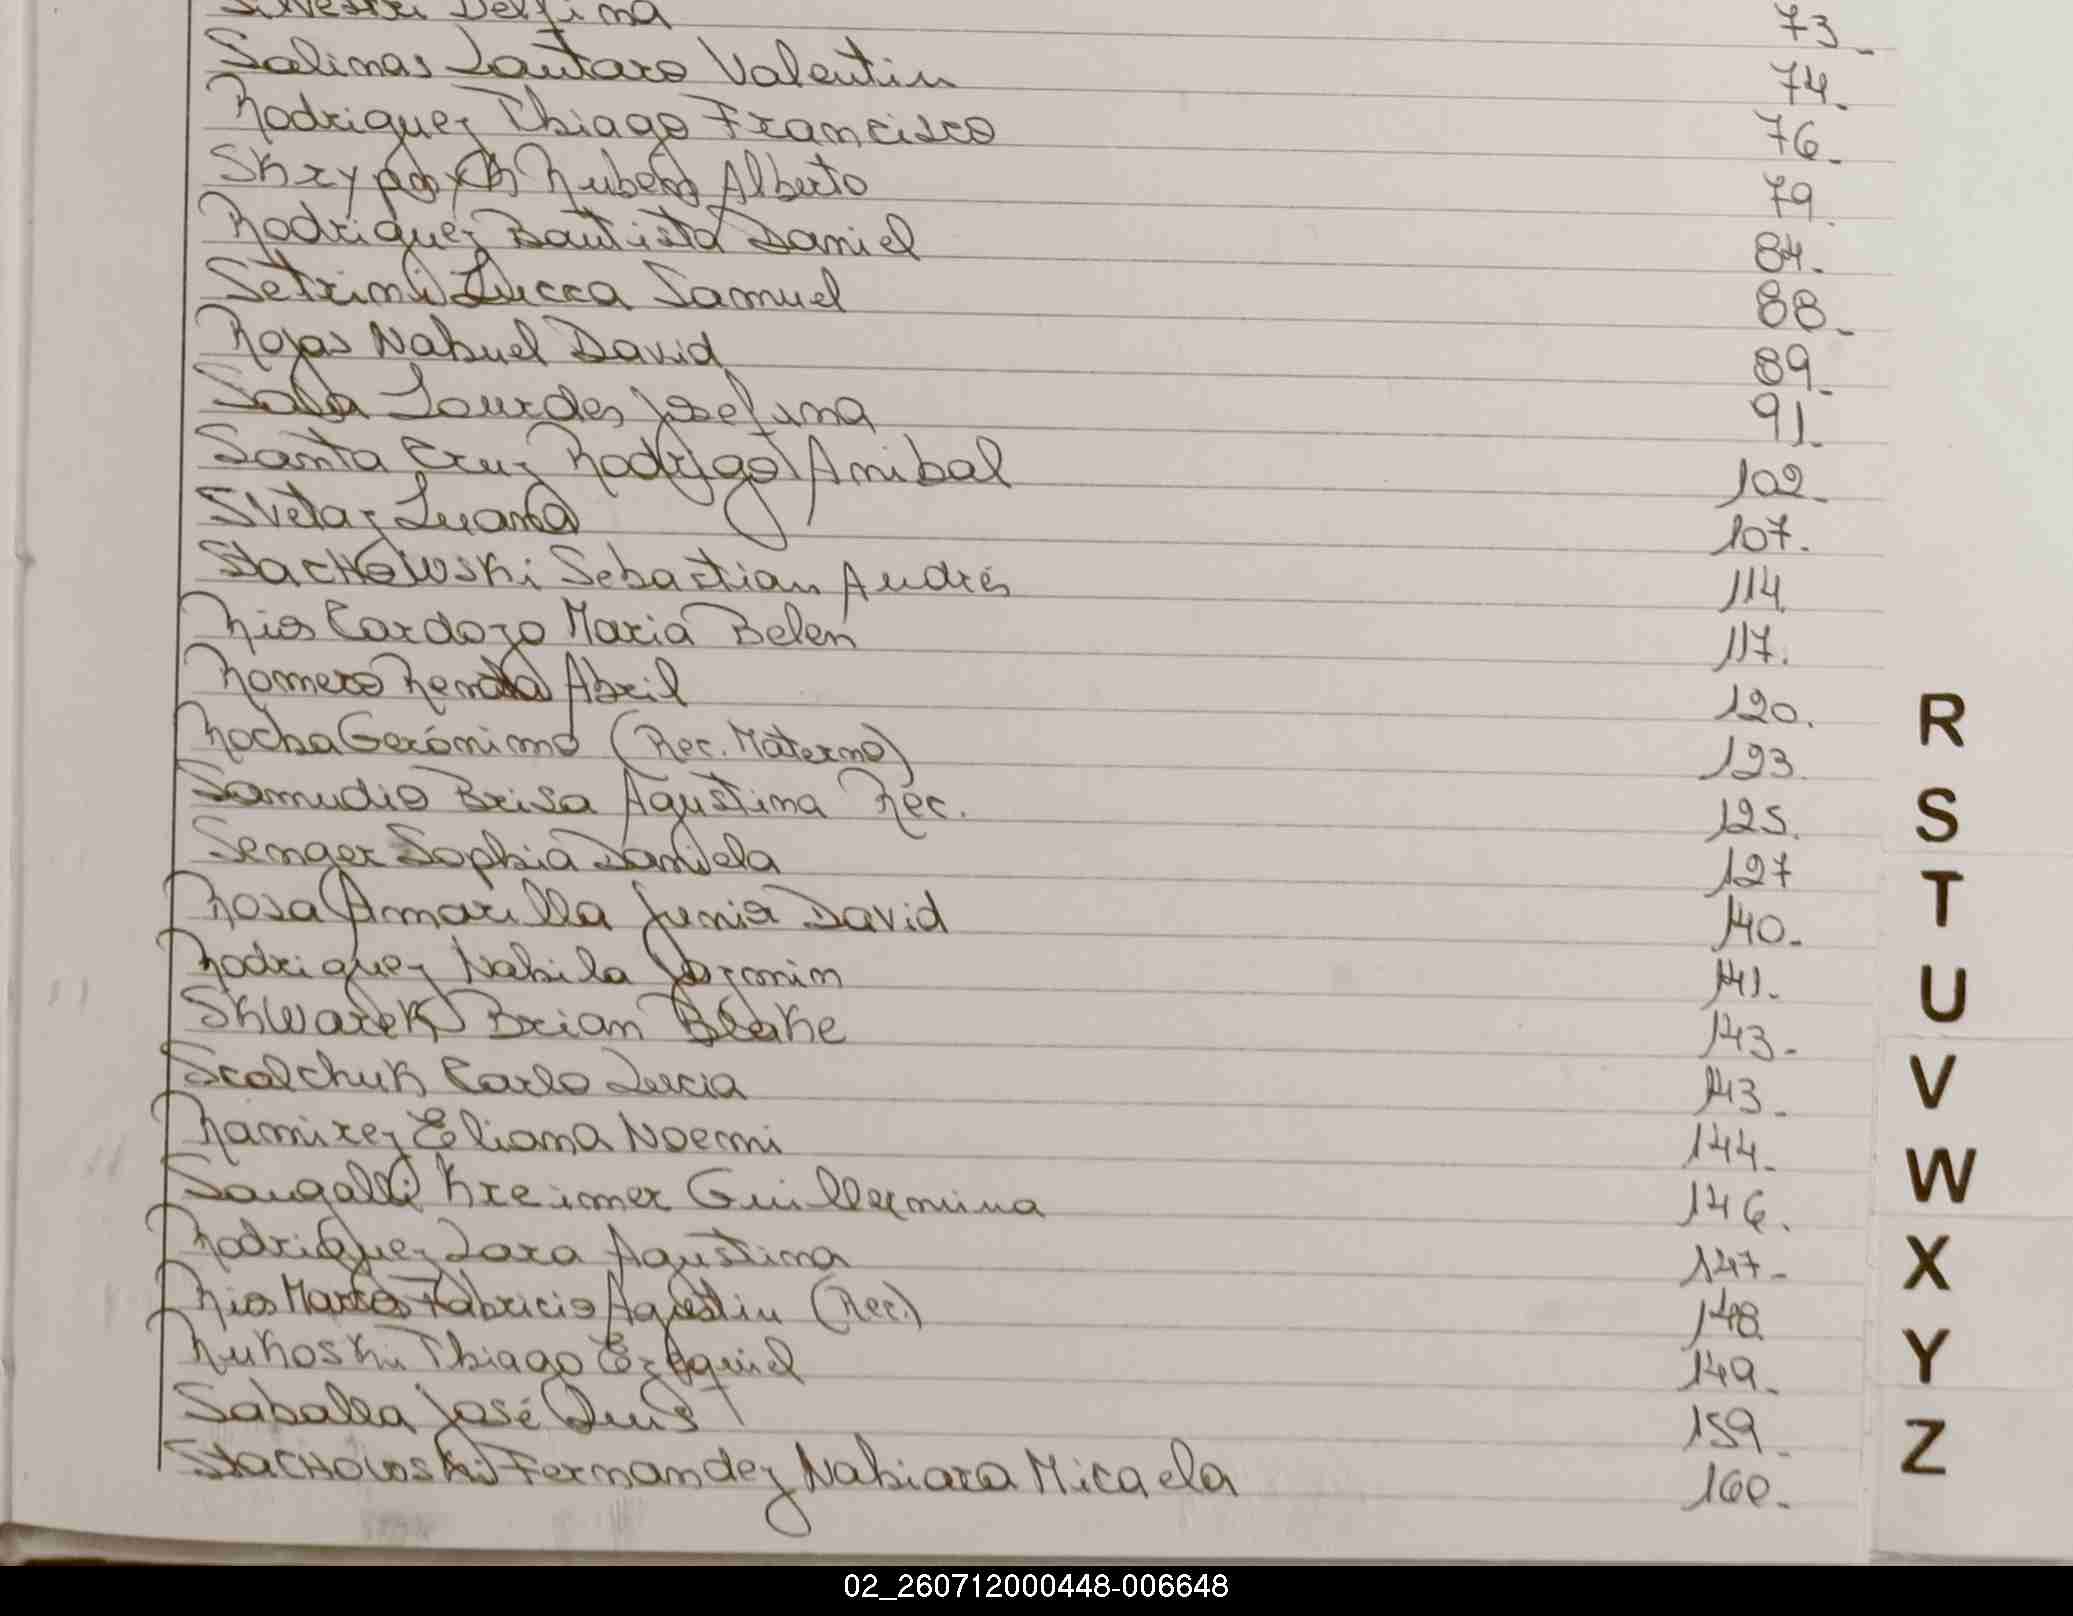 Silvestri Delfina 73_
Salinas Lautaro Valentin 74_
Rodriguez Thiago Francisco 76_
Ruben Alberto 79.
Rodriguez Bautista Daniel 84_
Setrini Lucca Samuel 88_
Rojas Nahuel David 89_
Lourdes Josefina 91_
Santa Cruz Rodrigo Anibal 102_
Svetaz Luana 107.
StacHowski Sebastian Andrés 114
Rios Cardozo Maria Belen 117.
Romero Renata Abril 120.
Rocha Gerónimo (Rec. Materno) 123.
Samudio Brisa Agustina Rec. 125.
Senger Sophia Daniela 127
Rosa Amarilla Junior David 140_
Rodriguez Nahila Jazmin 141_
Skwarek Brian Blake 143_
Scalchuk Carlo Lucia 143_
Ramirez Eliana Noemi 144_
Sangalli Kreimer Guillermina 146.
Rodriguez Zara Agustina 147_
Rios Marcos Fabricio Agustin (Rec.) 148
Rukoski Thiago Ezequiel 149_
Saballa José Luis 159_
StacHowski Fernandez Nahiara Micaela 160_
R
S
T
U
V
W
X
Y
Z
02_260712000448-006648